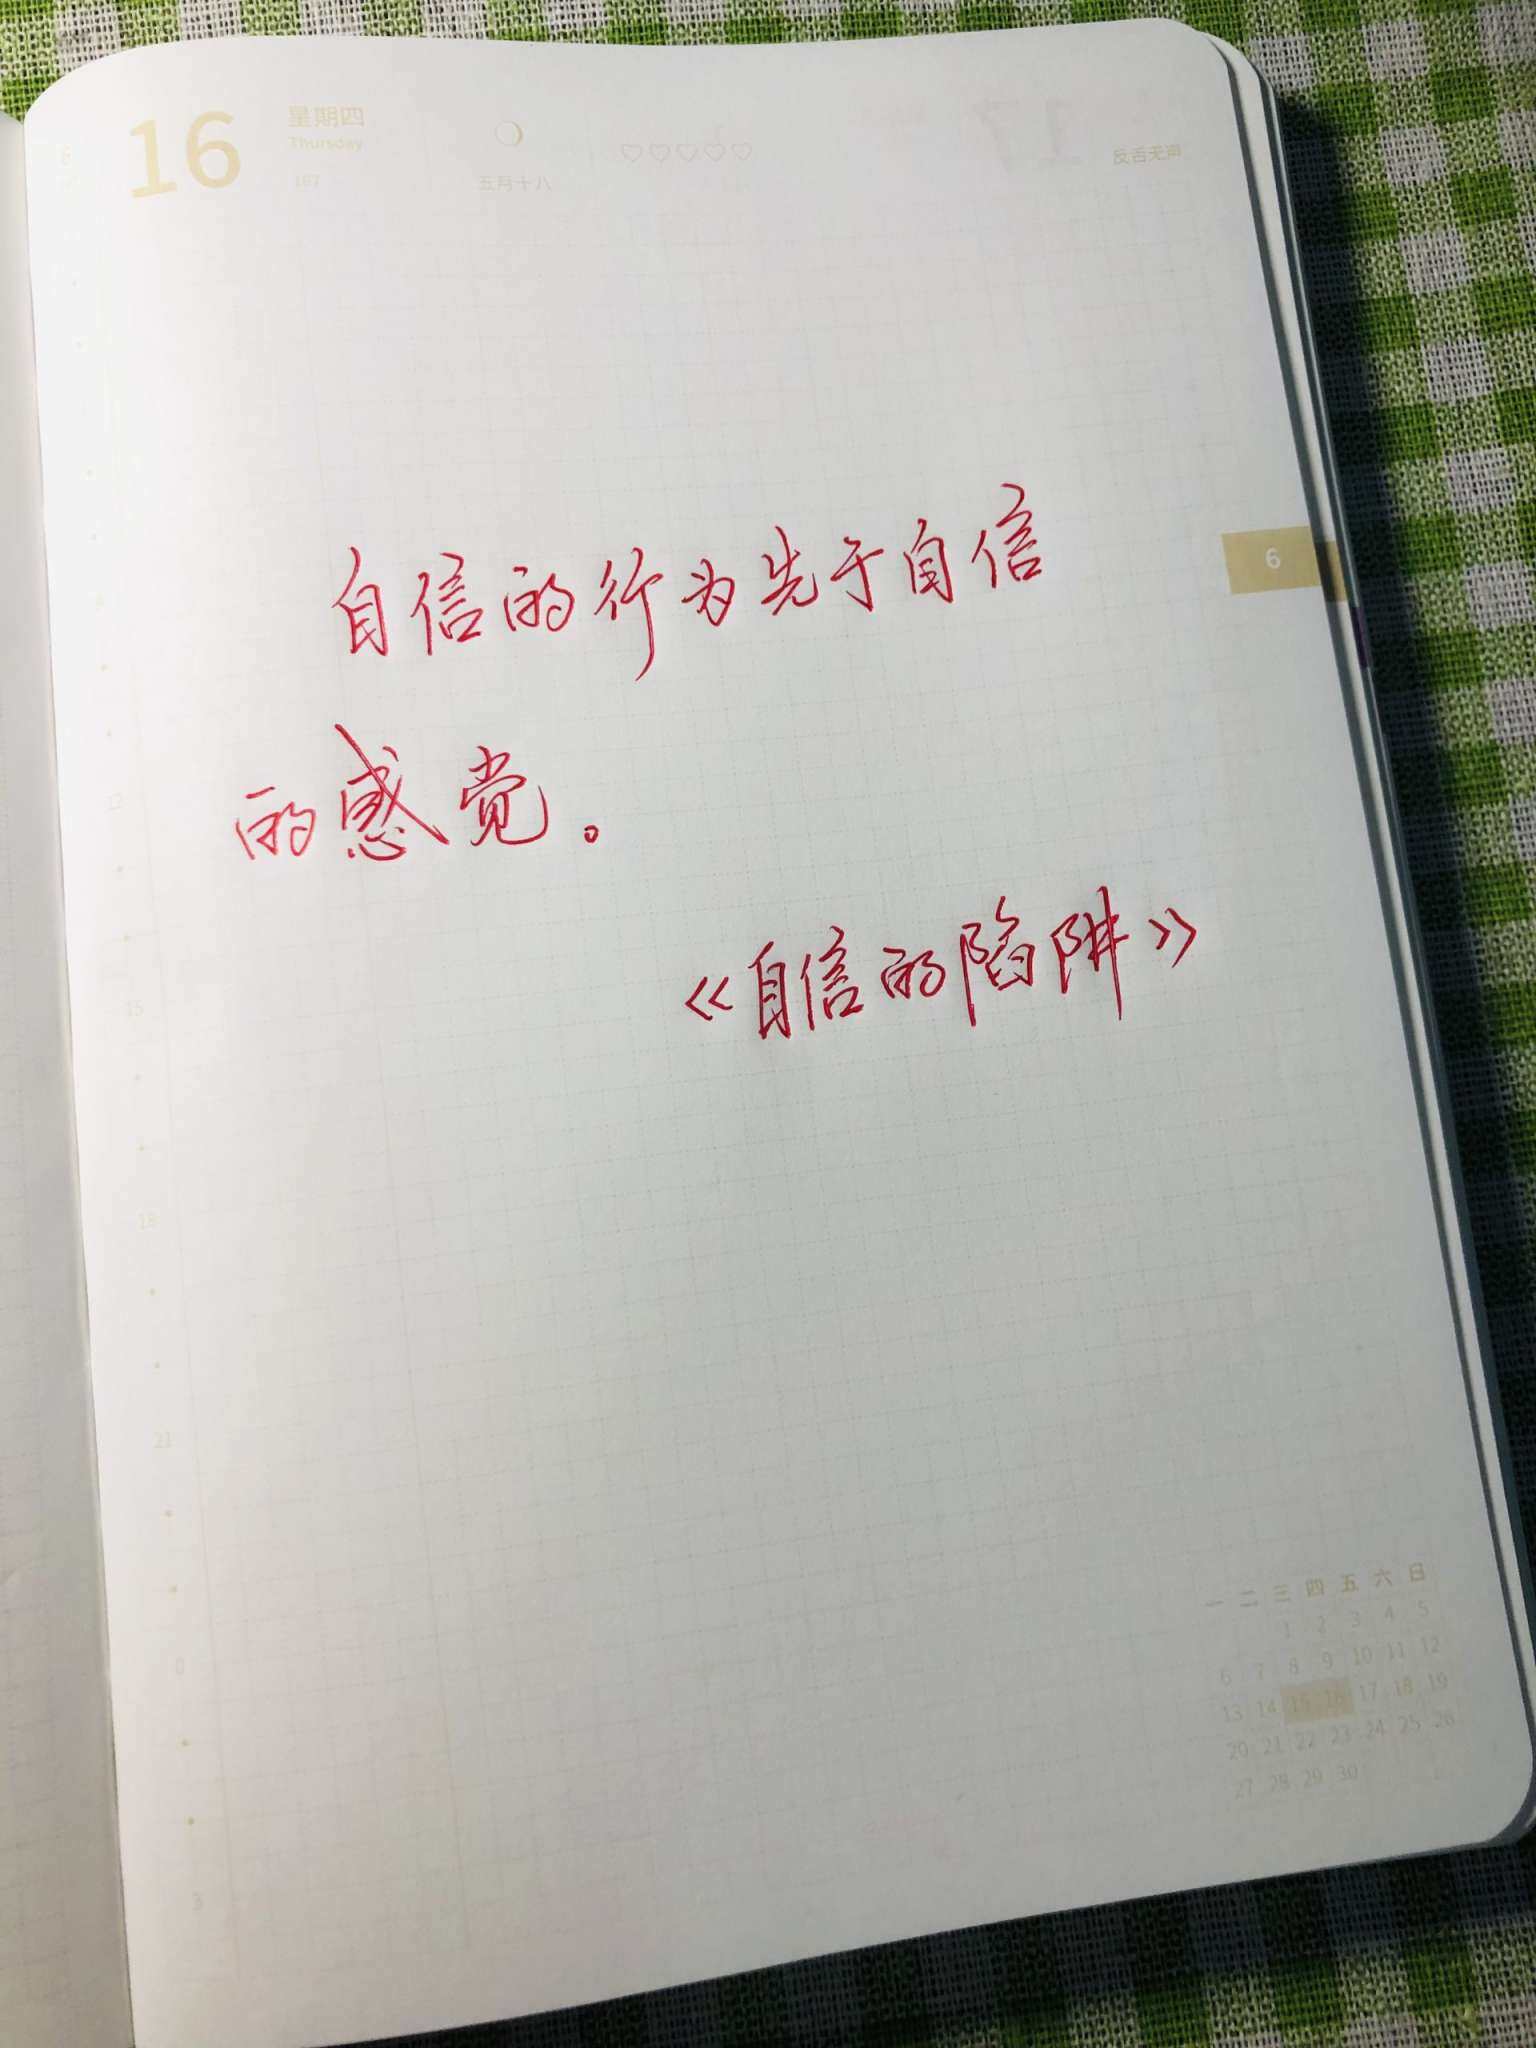 16
星期四
Thursday
167
五月十八
17
反舌无声
6
自信的行为先于自信
的感觉。
《自信的陷阱》
12
15
18
21
0
3
一 二 三 四 五 六 日
1 2 3 4 5
6 7 8 9 10 11 12
13 14 15 16 17 18 19
20 21 22 23 24 25 26
27 28 29 30